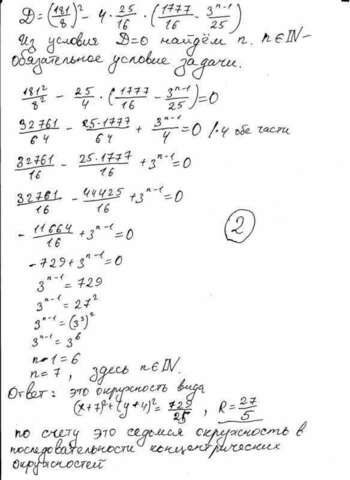 D = (181/8)² - 4 · 25/16 · (1777/16 - 3ⁿ⁻¹/25)
Из условия D=0 найдём n. n∈ℕ -
обязательное условие задачи.
181²/8² - 25/4 · (1777/16 - 3ⁿ⁻¹/25) = 0
32761/64 - 25·1777/64 + 3ⁿ⁻¹/4 = 0 /·4 обе части
32761/16 - 25·1777/16 + 3ⁿ⁻¹ = 0
32761/16 - 44425/16 + 3ⁿ⁻¹ = 0
- 11664/16 + 3ⁿ⁻¹ = 0
2
- 729 + 3ⁿ⁻¹ = 0
3ⁿ⁻¹ = 729
3ⁿ⁻¹ = 27²
3ⁿ⁻¹ = (3³)²
3ⁿ⁻¹ = 3⁶
n - 1 = 6
n = 7, здесь n∈ℕ.
Ответ: это окружность вида
(x+7)² + (y+4)² = 729/25, R = 27/5
по счету это седьмая окружность в
последовательности концентрических
окружностей